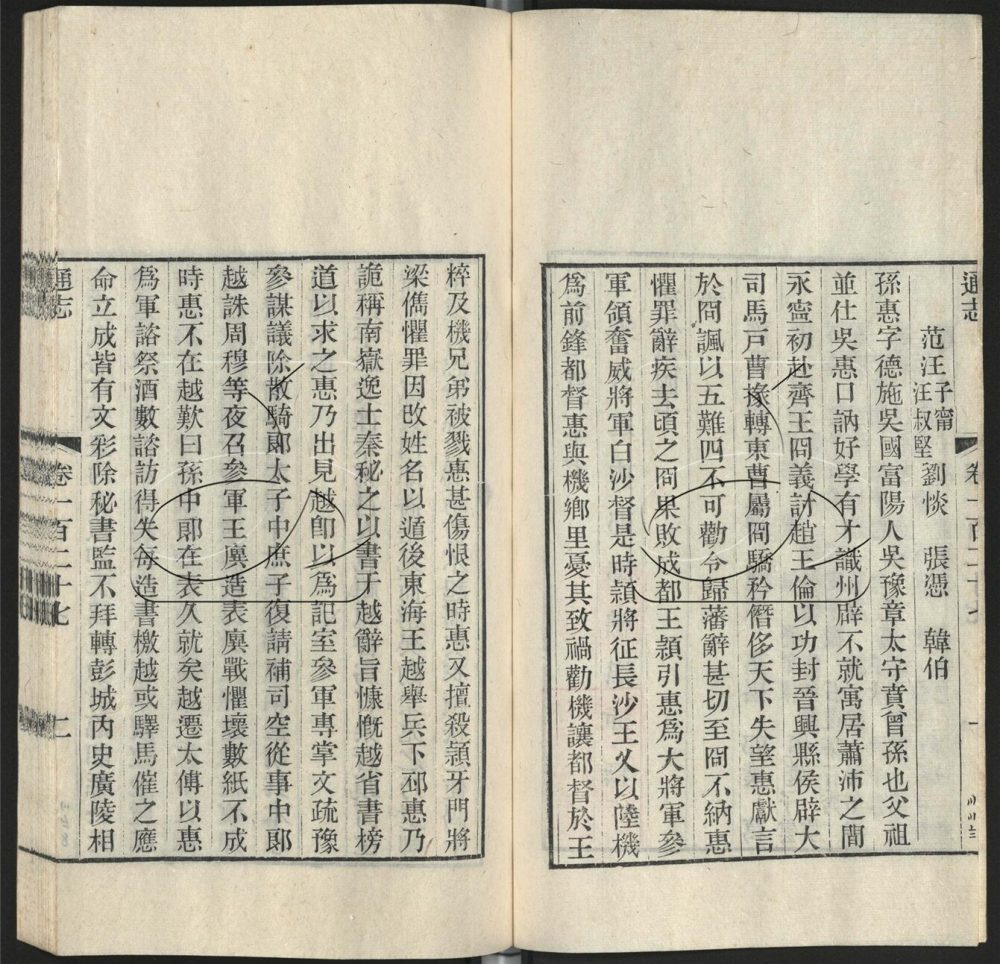 通志 卷一百二十七 一
范汪子甯 汪叔堅 劉惔 張憑 韓伯
孫惠字德施吳國富陽人吳豫章太守賁曾孫也父祖
並仕吳惠口訥好學有才識州辟不就寓居蕭沛之間
永寧初赴齊王冏義討趙王倫以功封晉興縣侯辟大
司馬戸曹掾轉東曹屬冏驕矜僭侈天下失望惠獻言
於冏諷以五難四不可勸令歸藩辭甚切至冏不納惠
懼罪辭疾去頃之冏果敗成都王頴引惠爲大將軍參
軍領奮威將軍白沙督是時頴將征長沙王乂以陸機
爲前鋒都督惠與機鄉里憂其致禍勸機讓都督於王
粹及機兄弟被戮惠甚傷恨之時惠又擅殺頴牙門將
梁儁懼罪因改姓名以遁後東海王越舉兵下邳惠乃
詭稱南嶽逸士秦秘之以書于越辭旨慷慨越省書榜
道以求之惠乃出見越卽以爲記室參軍專掌文疏豫
參謀議除散騎郞太子中庶子復請補司空從事中郞
越誅周穆等夜召參軍王廙造表廙戰懼壞數紙不成
時惠不在越歎曰孫中郞在表久就矣越遷太傅以惠
爲軍諮祭酒數諮訪得失每造書檄越或驛馬催之應
命立成皆有文彩除秘書監不拜轉彭城內史廣陵相
通志 卷一百二十七 二